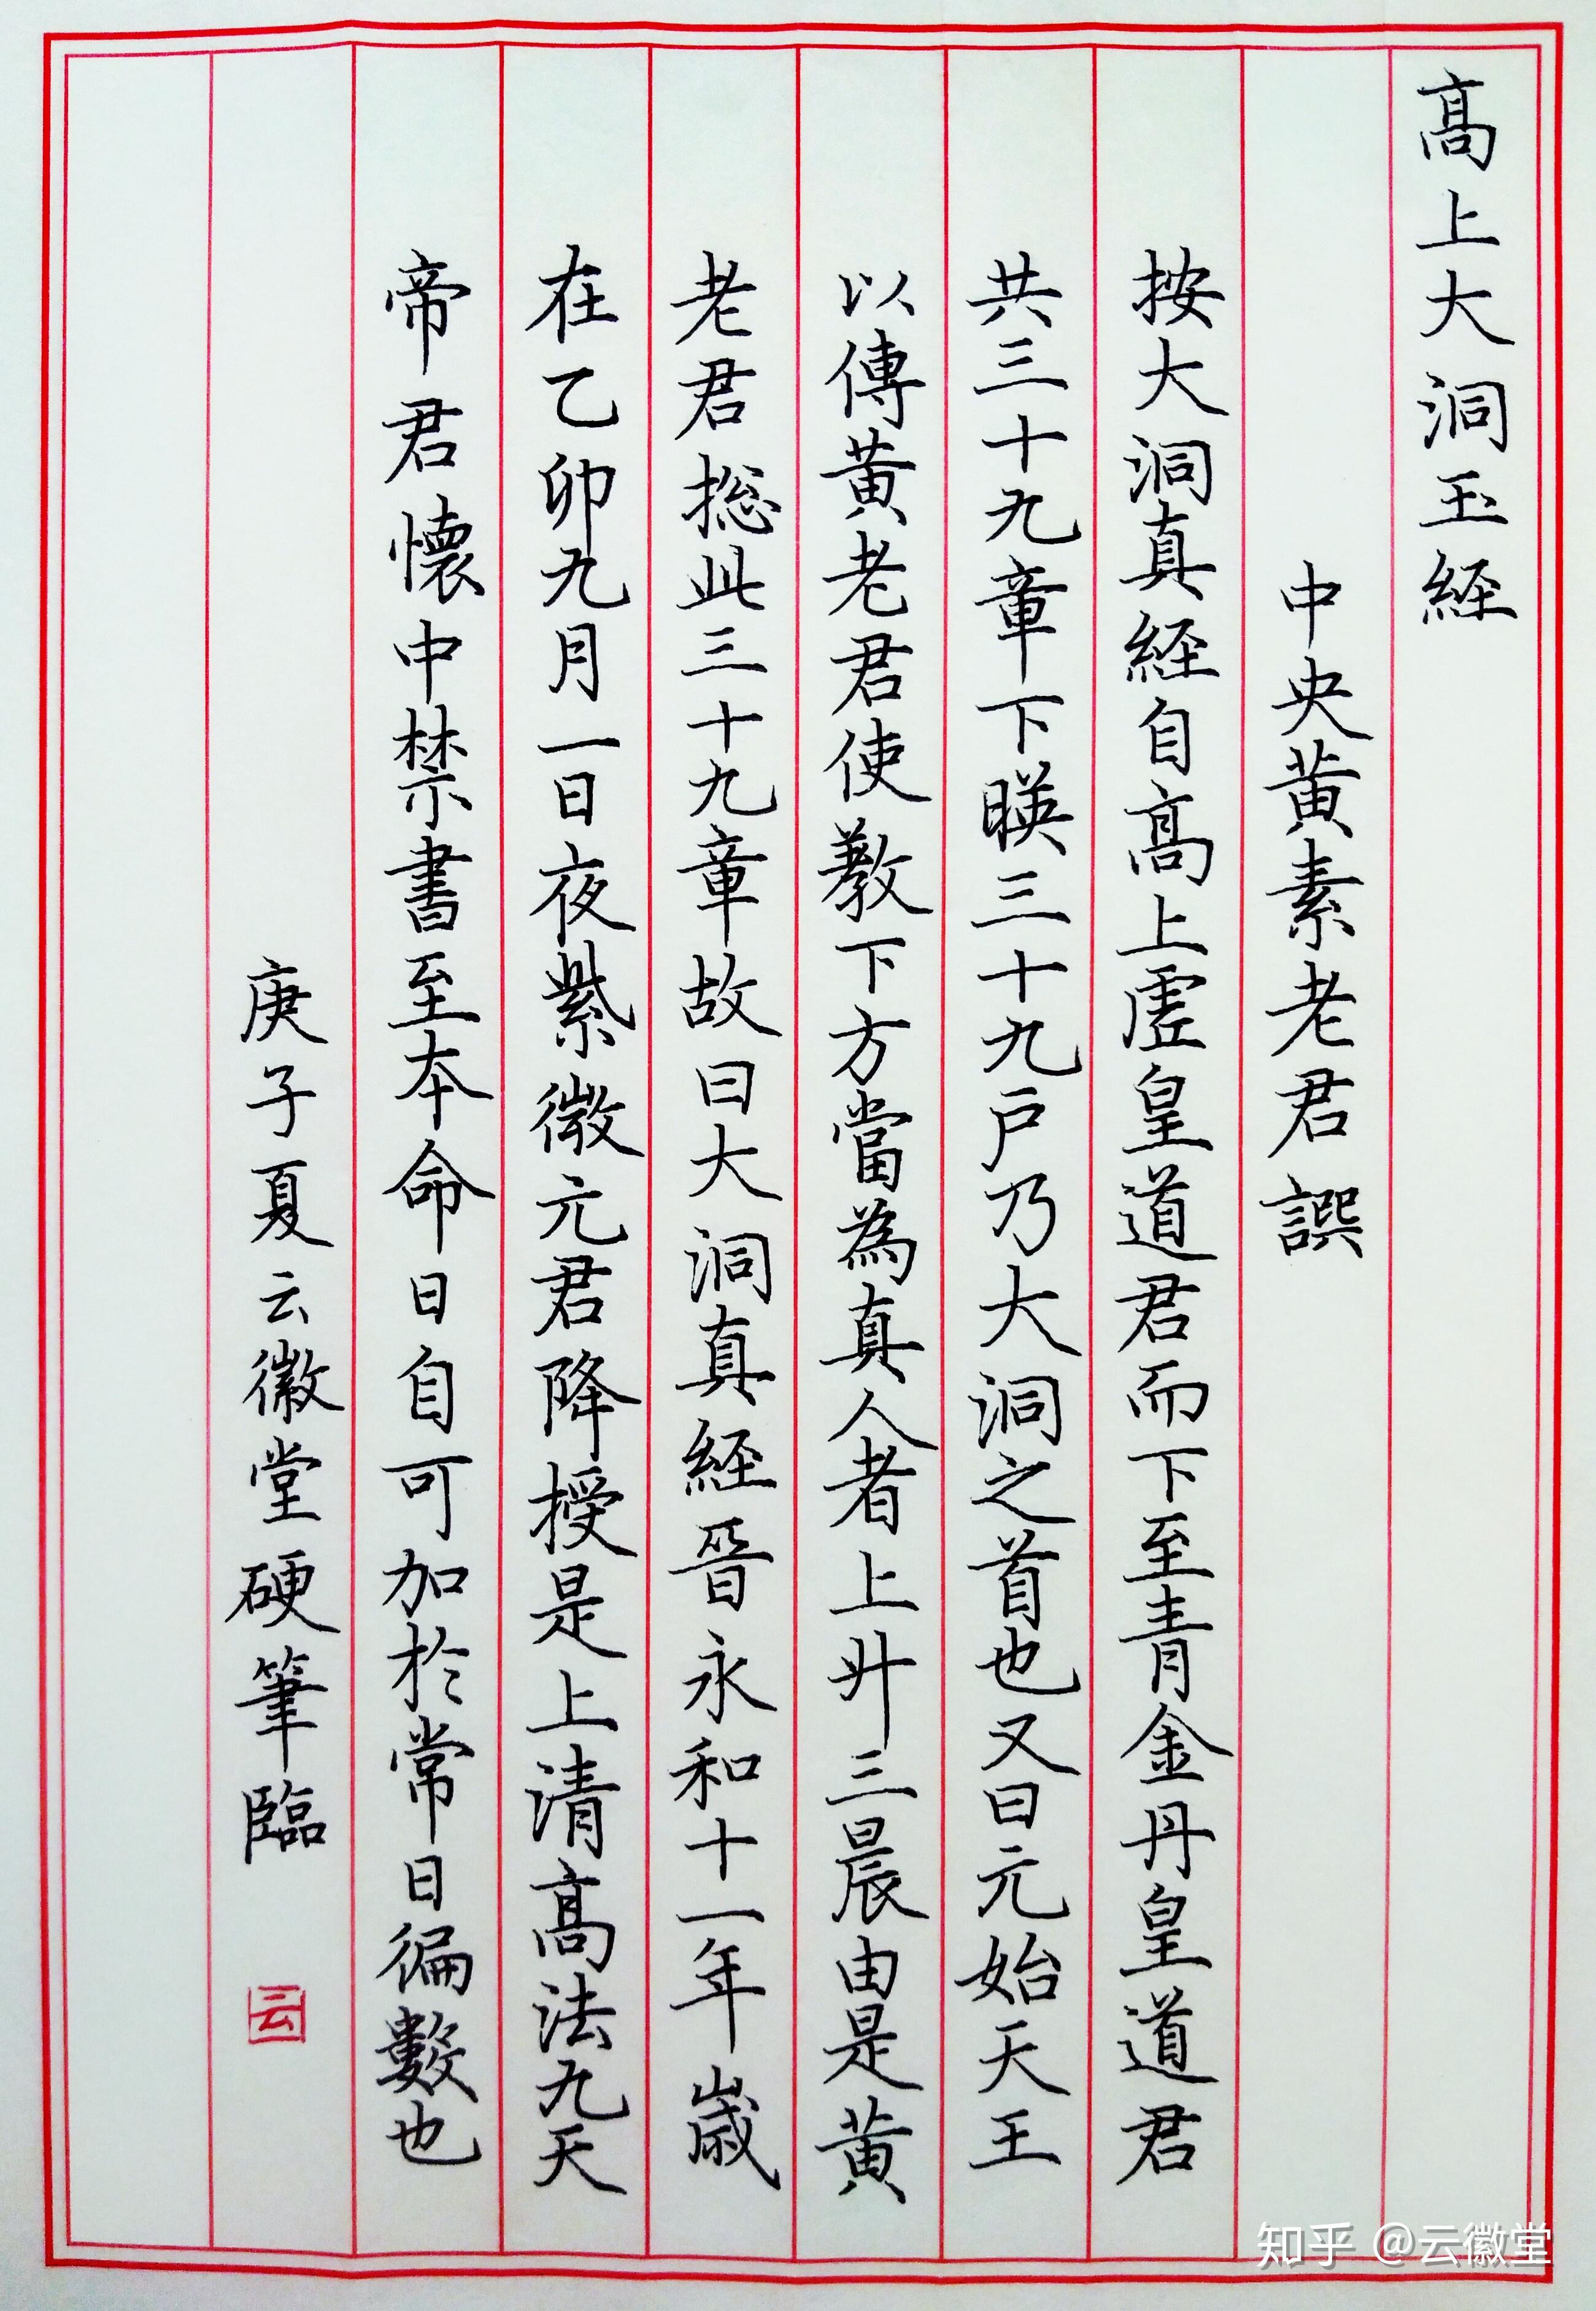 高上大洞玉経
中央黄素老君譔
按大洞真経自高上虗皇道君而下至青金丹皇道君
共三十九章下暎三十九戸乃大洞之首也又曰元始天王
以傳黄老君使教下方當為真人者上升三晨由是黄
老君捴此三十九章故曰大洞真経晉永和十一年歳
在乙卯九月一日夜紫微元君降授是上清高法九天
帝君懷中禁書至本命日自可加於常日徧數也
庚子夏云徽堂硬筆臨
云
知乎 @云徽堂